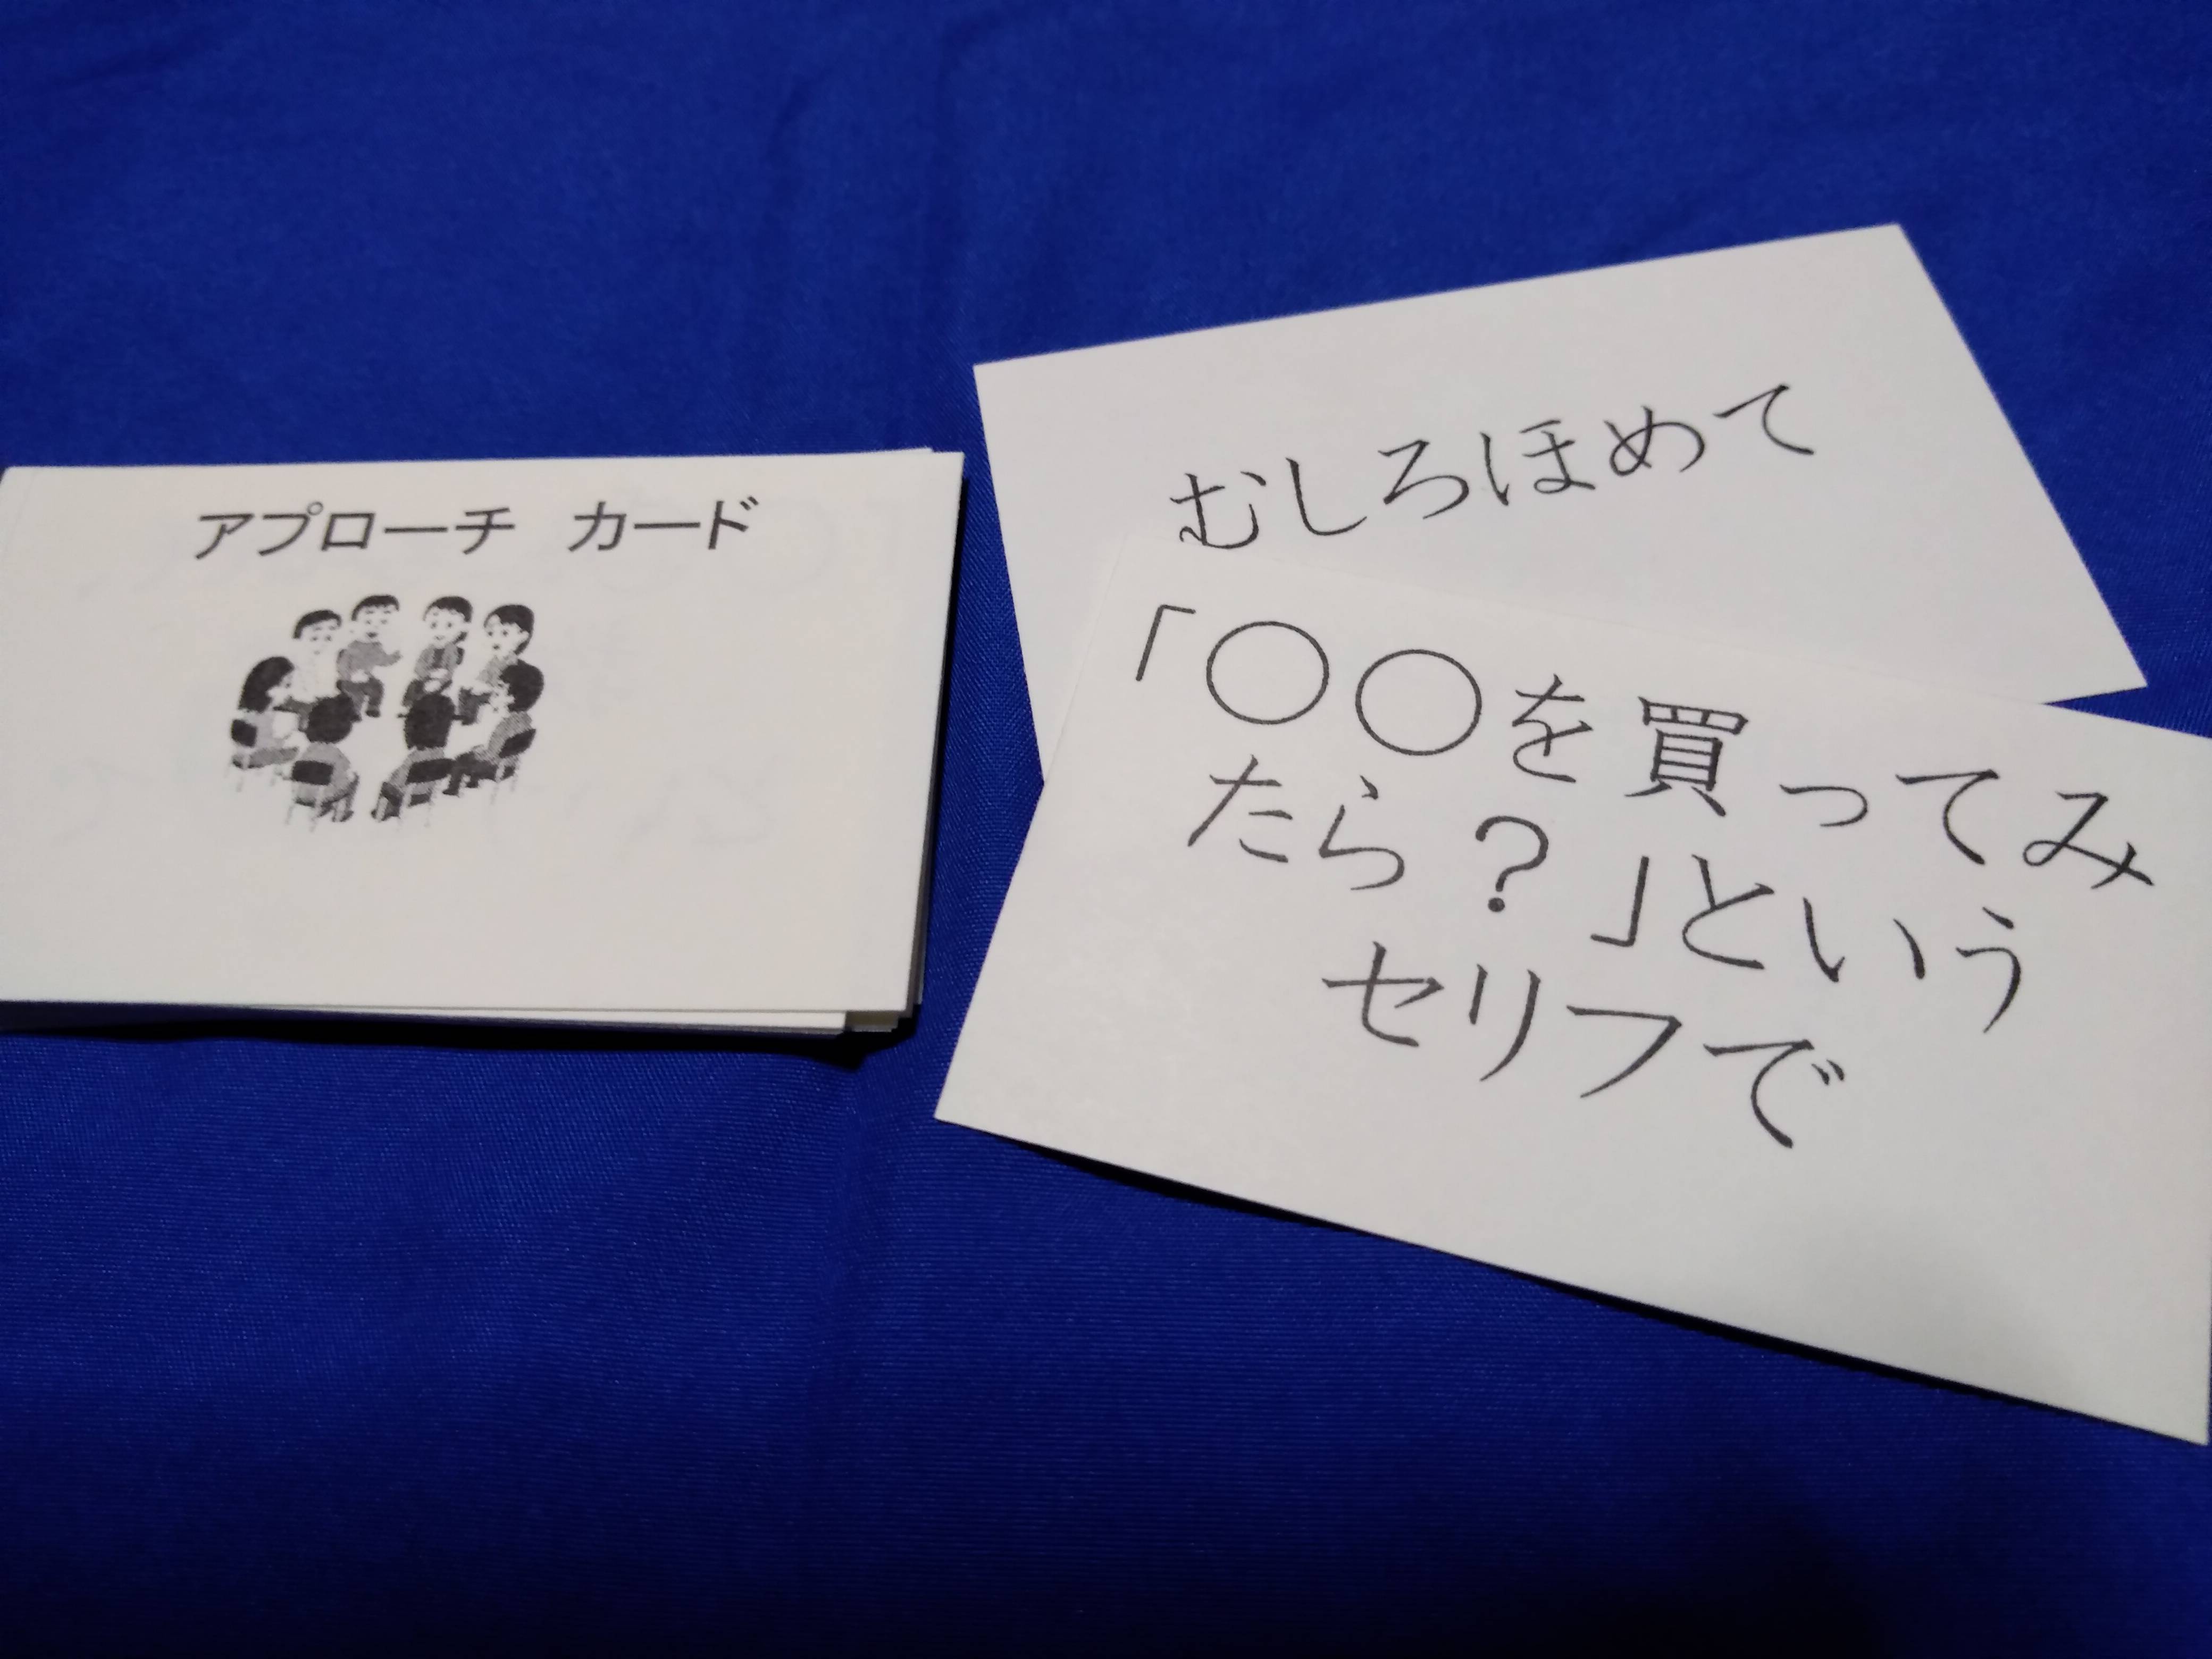 アプローチ カード
むしろほめて
「〇〇を買ってみ
たら？」という
セリフで